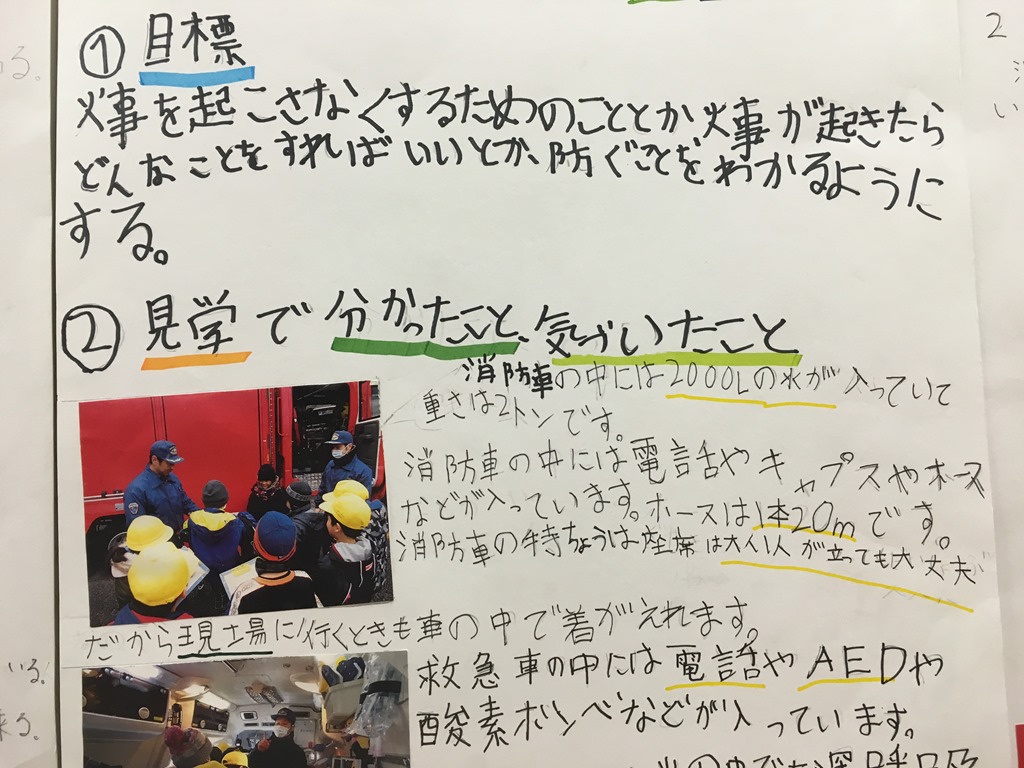 ① 目標
火事を起こさなくするためのこととか火事が起きたら
どんなことをすればいいとか、防ぐことをわかるように
する。
② 見学で分かったこと、気づいたこと
消防車の中には2000Lの水が入っていて
重さは2トンです。
消防車の中には電話やキャプスやホース
などが入っています。ホースは1本20mです。
消防車の特ちょうは座席は大人1人が立っても大丈夫
だから現場に行くときも車の中で着がえれます。
救急車の中には電話やAEDや
酸素ボンベなどが入っています。
の中でも
る。
いる。
来る。
2
い